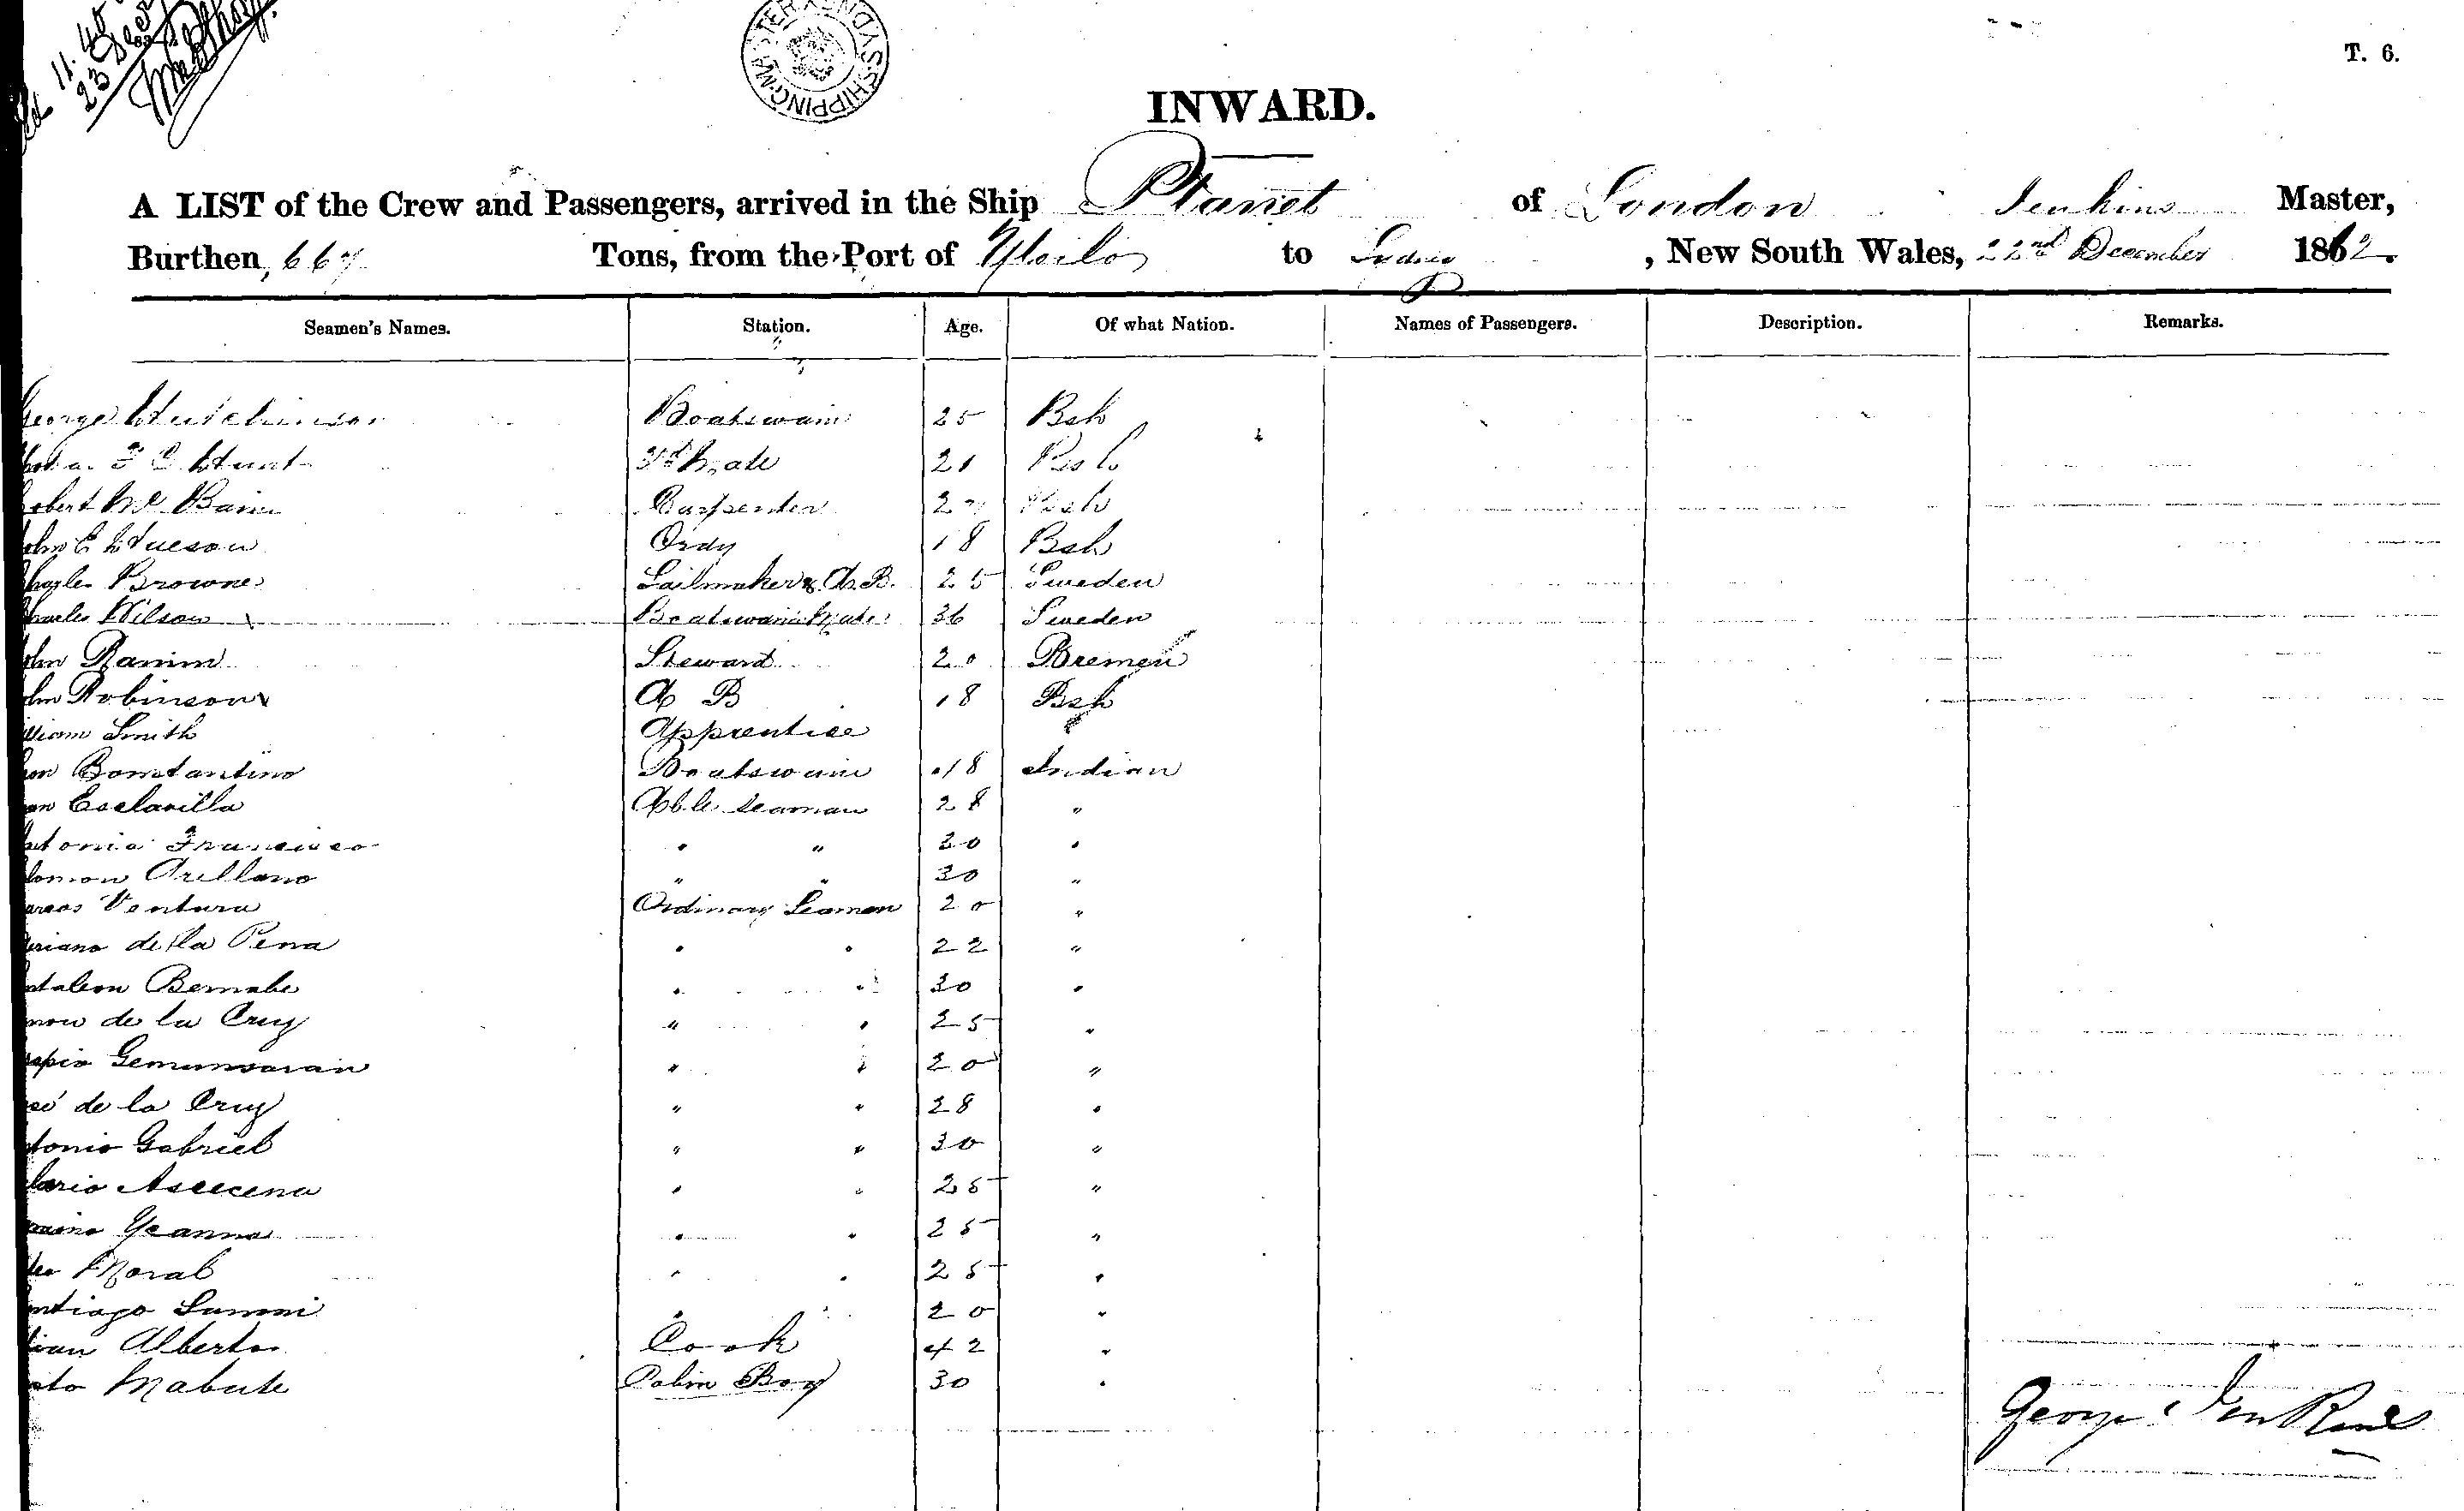 11.40
23 Decr
SHIPPING MASTER SYDNEY
T. 6.
INWARD.
A LIST of the Crew and Passengers, arrived in the Ship Planet of London Jenkins Master,
Burthen, 667 Tons, from the Port of Yloilo to Sydney, New South Wales, 22nd December 1862.
Seamen's Names. Station. Age. Of what Nation. Names of Passengers. Description. Remarks.
George Hutchinson Boatswain 25 Bsh
F C Hunt 3rd Mate 21 Bsh
Robert Mc Bain Carpenter 27 Bsh
John C Hueson Ordy 18 Bsh
Charles Browne Sailmaker & A.B. 25 Sweden
Charles Wilson Boatswain's Mate 36 Sweden
John Ramim Steward 20 Bremen
John Robinson A B 18 Bsh
William Smith Apprentice
Constantino Boatswain 18 Indian
Esclavilla Able Seaman 28 "
Antonio Francisco " " 20 "
lomon Arellano " " 30 "
arcos Ventura Ordinary Seaman 20 "
eriano de la Pena " " 22 "
ntaleon Bernabe " " 30 "
mon de la Cruz " " 25 "
rapio Gemunsaran " " 20 "
sé de la Cruz " " 28 "
ntonio Gabriel " " 30 "
lario Asecena " " 25 "
Yeanna " " 25 "
Moral " " 25 "
ntiago Summi " " 20 "
lian Alberto Cook 42 "
ato Mabute Cabin Boy 30 "
George Jenkins